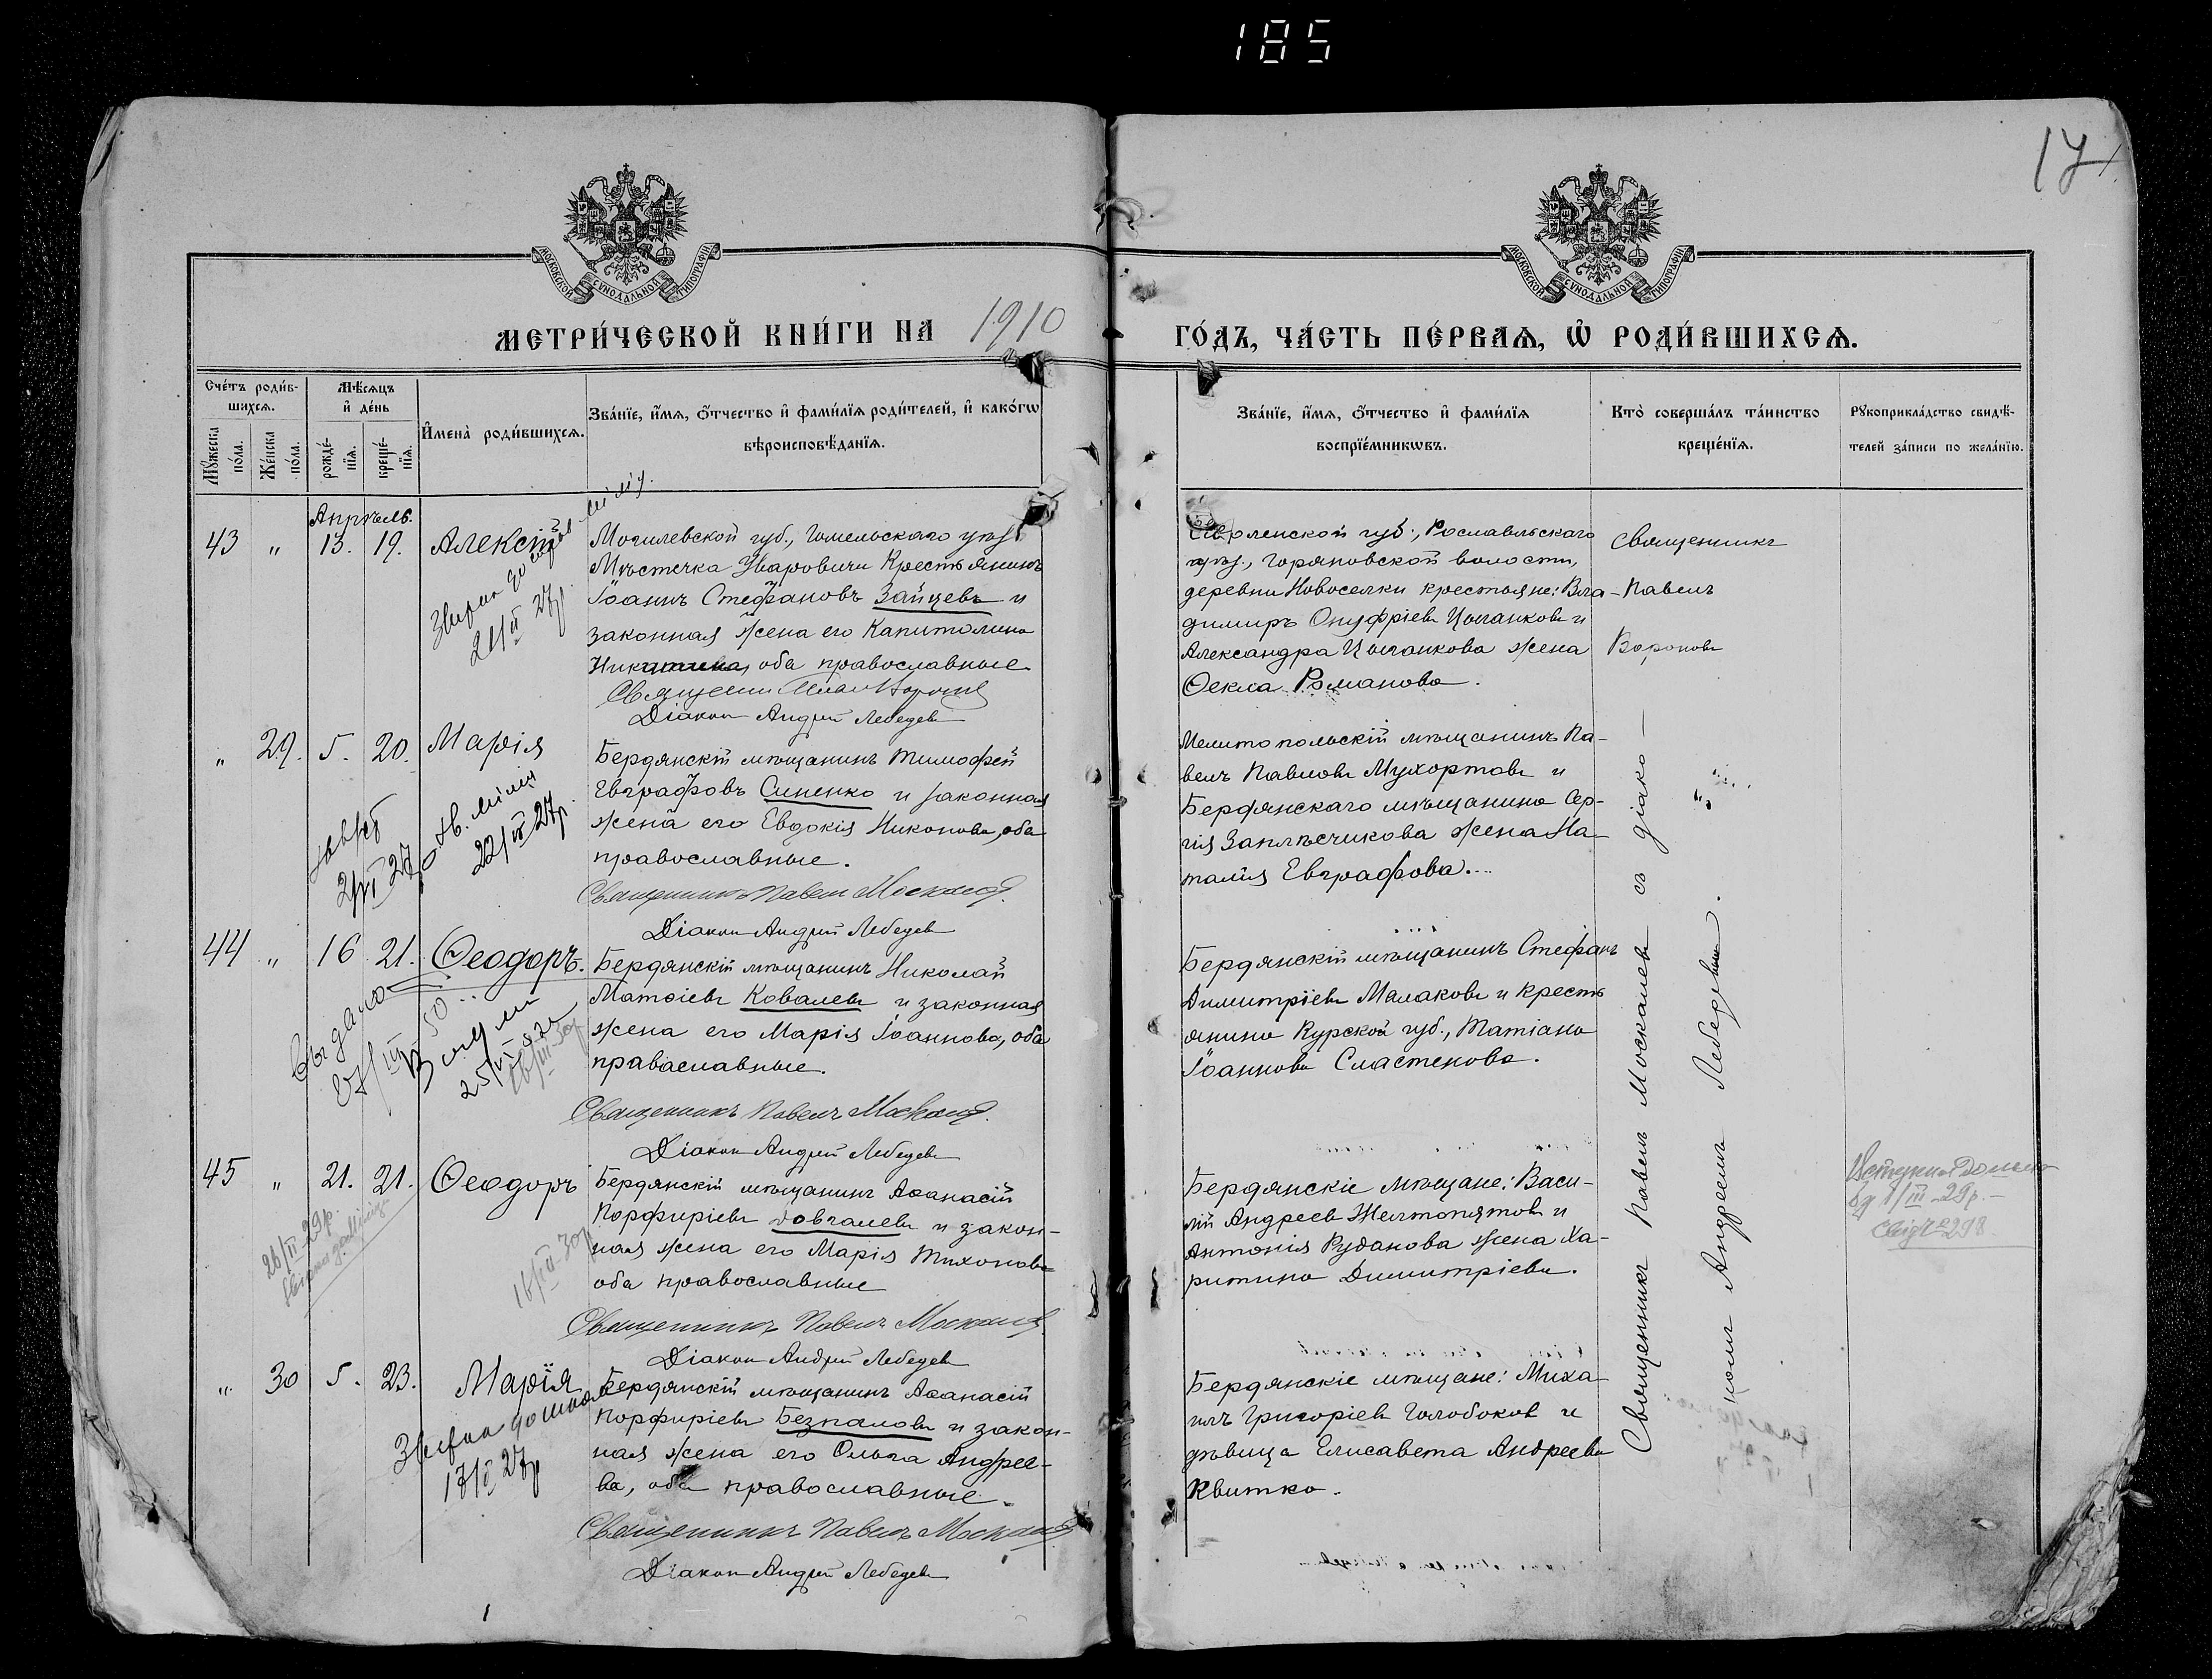 185
17
МОСКОВСКОЙ СѴНОДАЛЬНОЙ ТИПОГРАФІИ
МОСКОВСКОЙ СѴНОДАЛЬНОЙ ТИПОГРАФІИ
МЕТРИ́ЧЕСКОЙ КНИ́ГИ НА 1910
ГО́ДЪ, ЧА́СТЬ ПЕ́РВАѦ, Ѡ҆ РОДИ́ВШИХСѦ.
Сче́тъ роди́в-
шихсѧ.
Мꙋ́жеска по́ла.
Же́нска по́ла.
Мѣ́сѧцъ
и҆ де́нь
рожде́-
нїѧ.
креще́-
нїѧ.
И҆мена̀ роди́вшихсѧ.
Зва́нїе, и҆́мѧ, ѻ҆́тчество и҆ фами́лїѧ роди́телей, и҆ како́гѡ
вѣроисповѣ́данїѧ.
Зва́нїе, и҆́мѧ, ѻ҆́тчество и҆ фами́лїѧ
воспрїе́мникѡвъ.
Кто̀ соверша́лъ та́инство
креще́нїѧ.
Рꙋкоприкла́дство свидѣ́-
телей за́писи по жела́нїю.
Апрѣль.
43 " 13. 19. Алексій
Могилевской губ., Гомельскаго уѣз.
Мѣстечка Уваровичи Крестьянинъ
Іоаннъ Стефановъ Зайцевъ и
законная жена его Капитолина
Никитина, оба православные
Діаконъ Андрей Лебедевъ
Смоленской губ., Рославльскаго
уѣз., Горяновской волости,
деревни Новоселки крестьяне: Вла-
димиръ Онуфріевъ Цыганковъ и
Александра Цыганкова жена
Ѳекла Романова.
Священникъ
Павелъ
Воронов
" 29. 5. 20. Марія
22/IV 27р
Бердянскій мѣщанинъ Тимофей
Евграфовъ Синенко и законная
жена его Евдокія Никонова, оба
православные.
Священникъ Павелъ Москалев
Діаконъ Андрей Лебедевъ
Мелитопольскій мѣщанинъ Па-
велъ Павловъ Мухортовъ и
Бердянскаго мѣщанина Сер-
гія Заплѣчикова жена На-
талія Евграфова.
44 " 16 21. Ѳеодоръ.
Выдано
Бердянскій мѣщанинъ Николай
Матѳіевъ Ковалевъ и законная
жена его Марія Іоаннова, оба
православные.
Священникъ Павелъ Москалев
Діаконъ Андрей Лебедевъ
Бердянскій мѣщанинъ Стефанъ
Димитріевъ Малаковъ и кресть
янина Курской губ., Татіана
Іоаннова Сластенова.
45 " 21. 21. Ѳеодоръ
26/II 29р.
16/III 30р
Бердянскій мѣщанинъ Аѳанасій
Порфиріевъ Довгалевъ и закон-
ная жена его Марія Тихонова
оба православные
Священникъ Павелъ Москалев
Діаконъ Андрей Лебедевъ
Бердянскіе мѣщане: Васи-
лій Андреев Желтопятовъ и
Антонія Рудакова жена Ха-
ритина Димитріева.
1/III-29р.-
" 30 5. 23. Марія
Бердянскій мѣщанинъ Аѳанасій
Порфиріевъ Безпаловъ и закон-
ная жена его Ольга Андрее-
ва, оба православные.
Священникъ Павелъ Москалев
Діаконъ Андрей Лебедевъ
Бердянскіе мѣщане: Миха-
илъ Григоріевъ Голобоков и
дѣвица Елисавета Андреева
Квитко.
Священникъ Павелъ Москалевъ съ діако-
номъ Андреемъ Лебедевымъ.